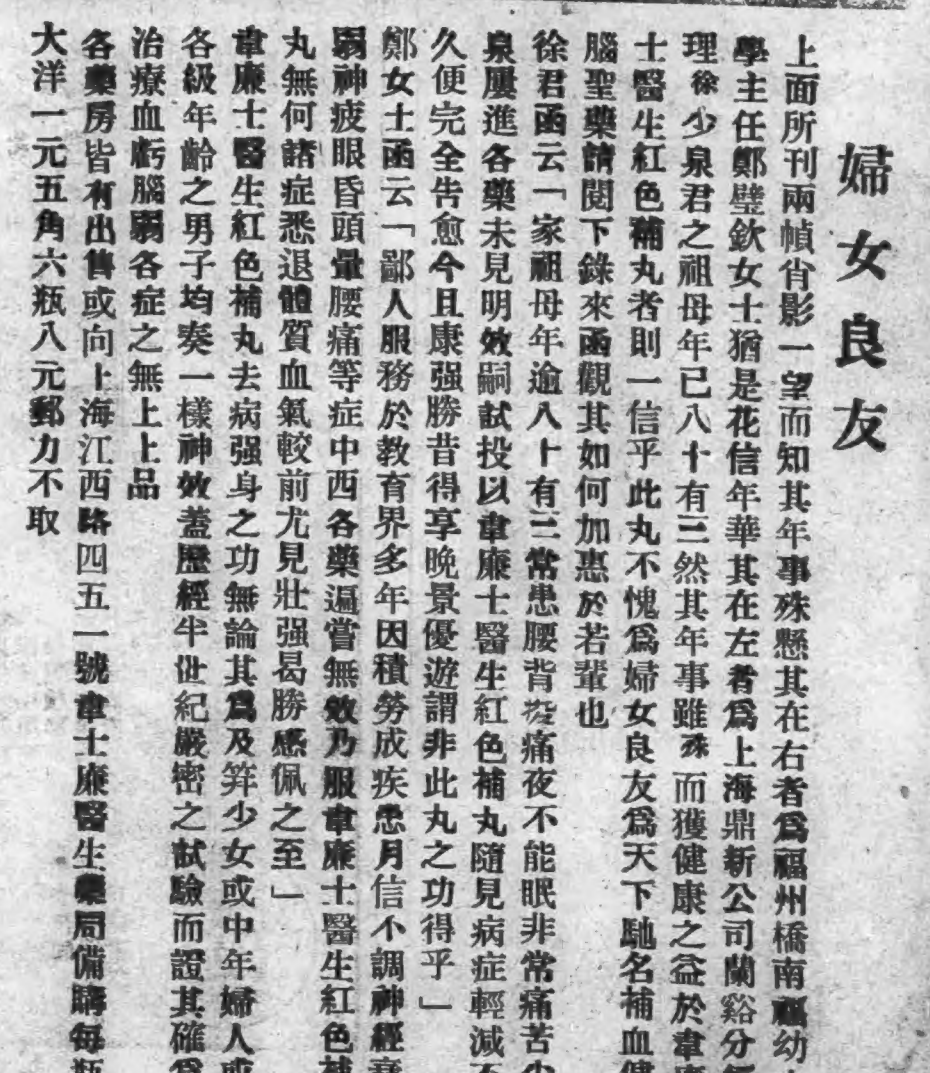 婦女良友
上面所刊兩幀肖影一望而知其年事殊懸其在右者爲福州橋南福幼
學主任鄭璧欽女士猶是花信年華其在左者爲上海鼎新公司蘭谿分
理徐少泉君之祖母年已八十有三然其年事雖殊而獲健康之益於韋廉
士醫生紅色補丸者則一信乎此丸不愧爲婦女良友爲天下馳名補血健
腦聖藥請閱下錄來函觀其如何加惠於若輩也
徐君函云「家祖母年逾八十有三常患腰背痠痛夜不能眠非常痛苦少
泉屢進各藥未見明效嗣試投以韋廉士醫生紅色補丸隨見病症輕減不
久便完全告愈今且康强勝昔得享晚景優遊謂非此丸之功得乎」
鄭女士函云「鄙人服務於教育界多年因積勞成疾患月信不調神經衰
弱神疲眼昏頭暈腰痛等症中西各藥遍嘗無效乃服韋廉士醫生紅色補
丸無何諸症悉退體質血氣較前尤見壯强曷勝感佩之至」
韋廉士醫生紅色補丸去病强身之功無論其爲及笄少女或中年婦人或
各級年齡之男子均奏一樣神效蓋歷經半世紀嚴密之試驗而證其確爲
治療血虧腦弱各症之無上上品
各藥房皆有出售或向上海江西路四五一號韋士廉醫生藥局備購每瓶
大洋一元五角六瓶八元郵力不取